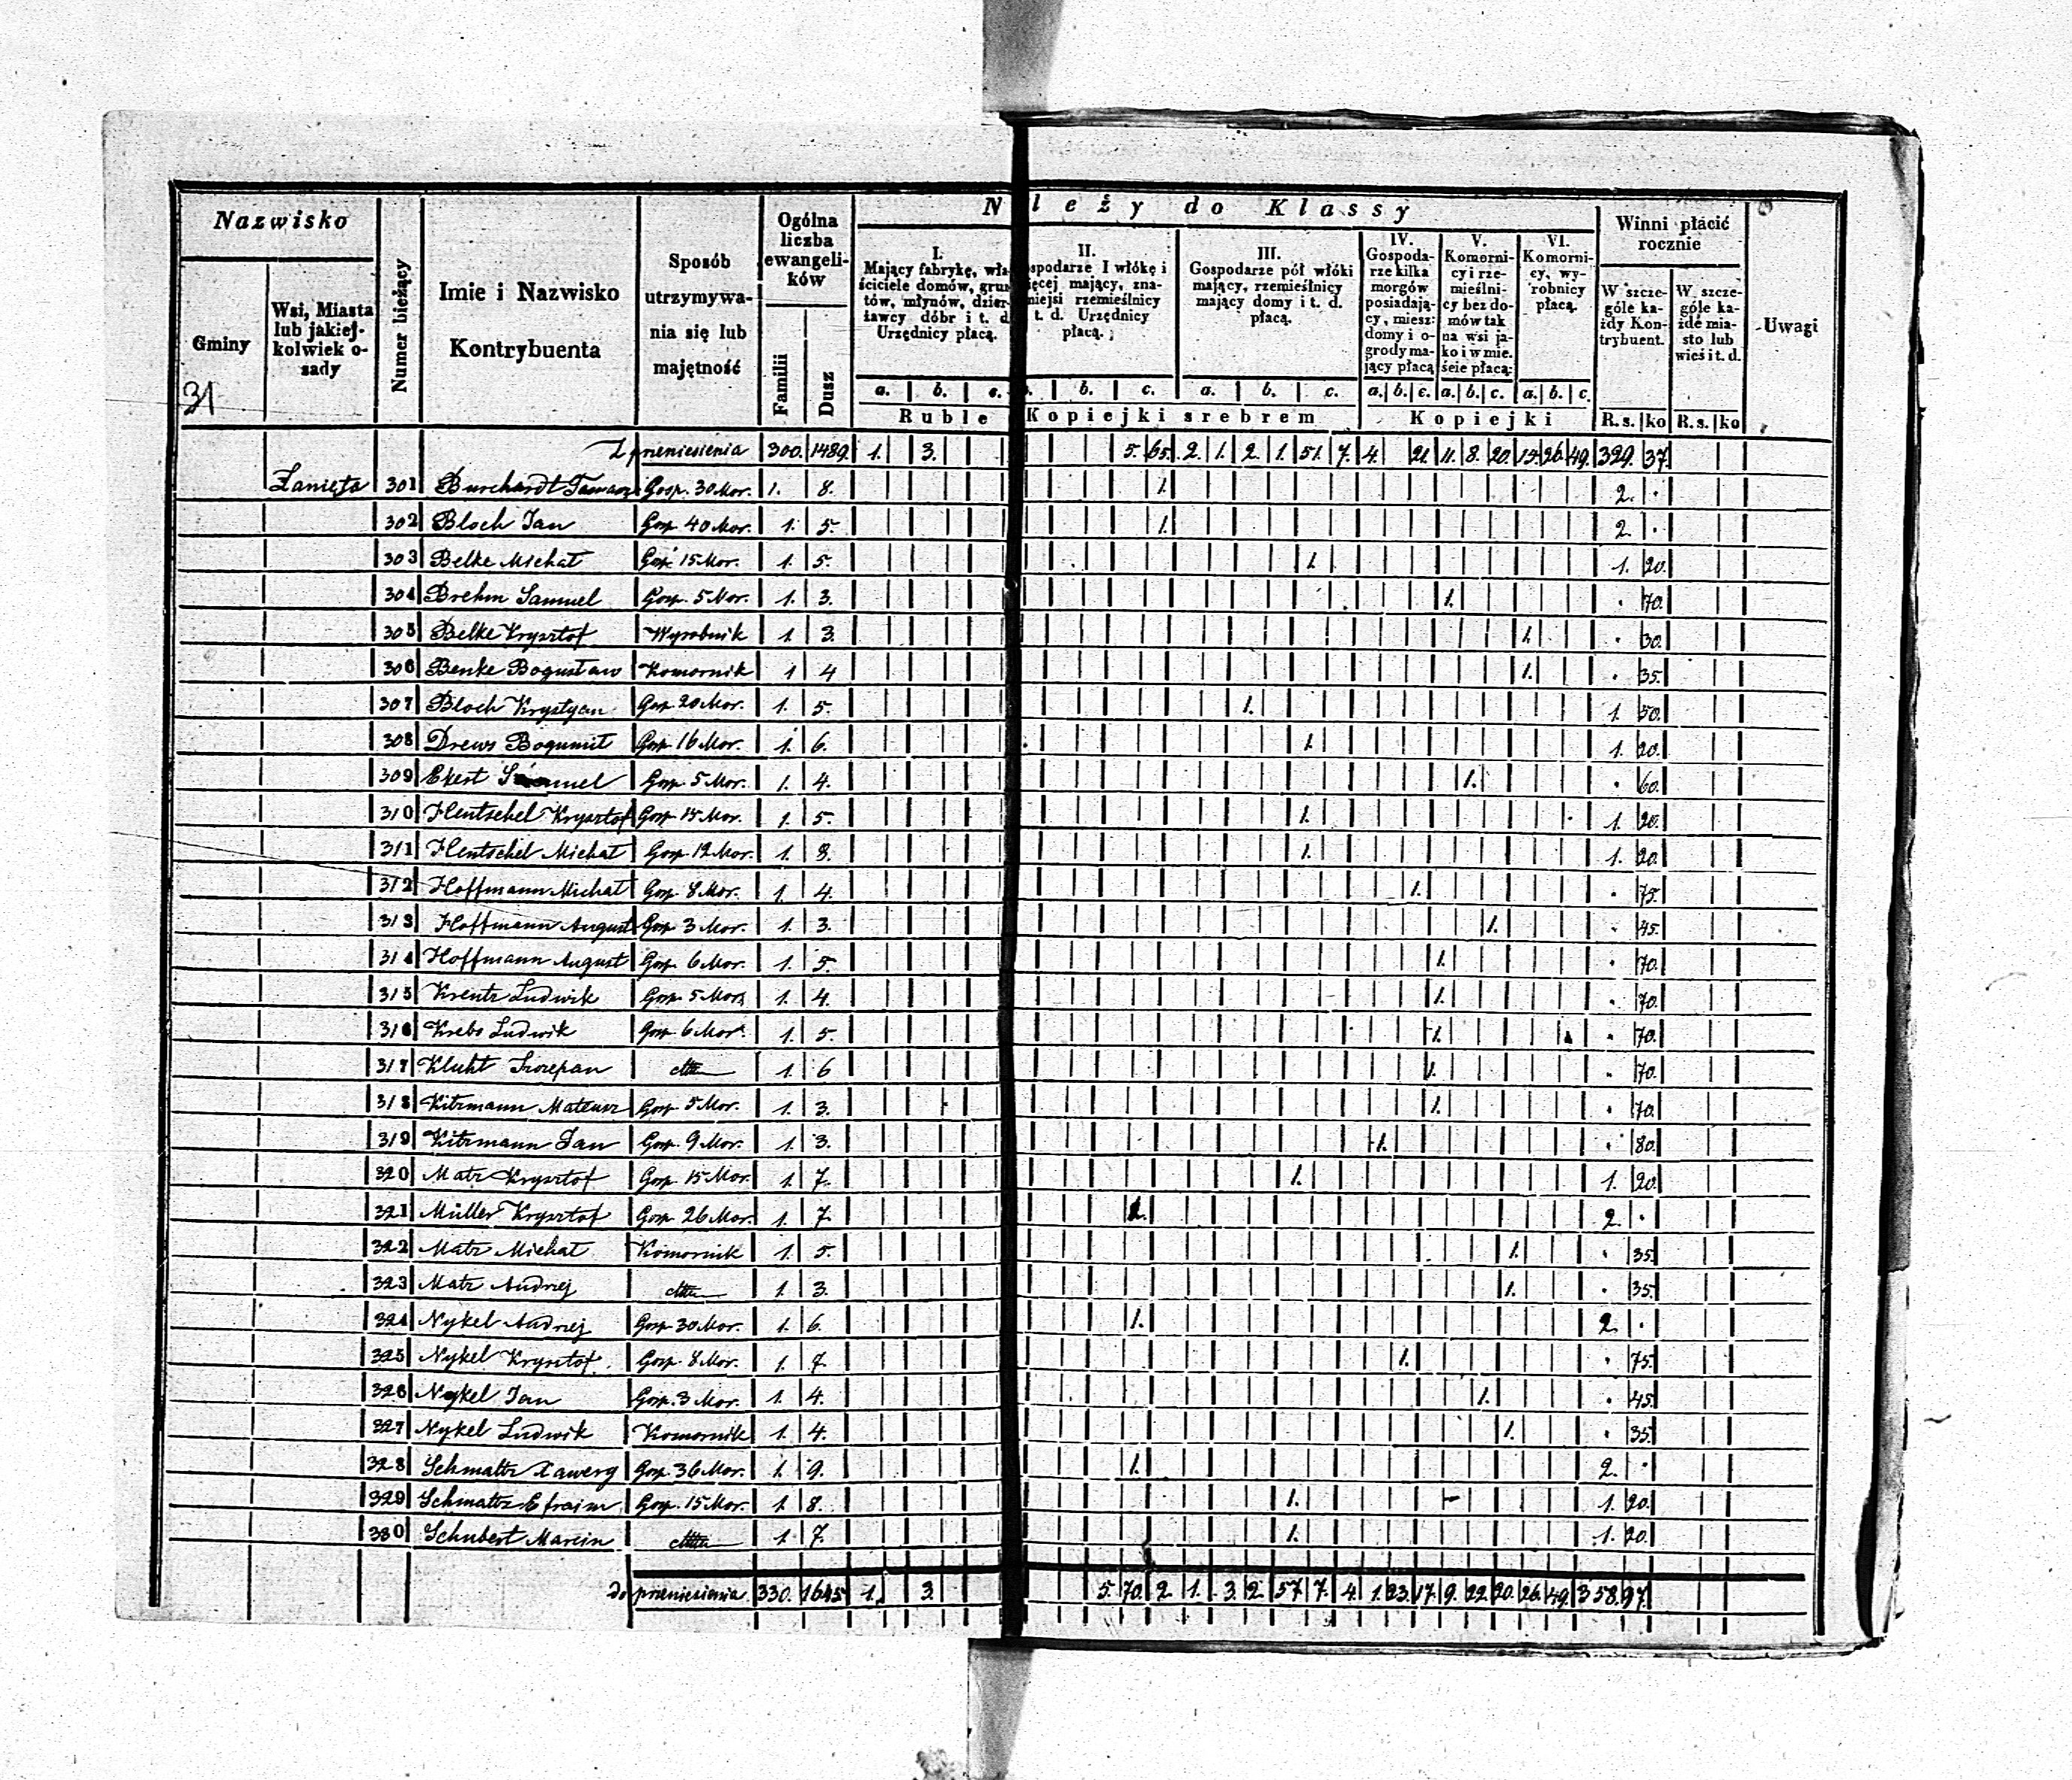 Nazwisko
Gminy
31
Wsi, Miasta
lub jakiej-
kolwiek o-
sady
Numer bieżący
Imie i Nazwisko
Kontrybuenta
Sposób
utrzymywa-
nia się lub
majętność
Ogólna
liczba
ewangeli-
ków
Familii
Dusz
N leży do Klassy
I.
Mający fabrykę, wła-
ściciele domów, grun
tów, młynów, dzier-
żawcy dóbr i t. d.
Urzędnicy płacą.
II.
spodarze I włókę i
ięcej mający, zna-
niejsi rzemieślnicy
t. d. Urzędnicy
płacą.
III.
Gospodarze pół włóki
mający, rzemieślnicy
mający domy i t. d.
płacą.
IV.
Gospoda-
rze kilka
morgów
posiadają-
cy, miesz:
domy i o-
grody ma-
jący płacą
V.
Komorni-
cy i rze-
mieślni-
cy bez do-
mów tak
na wsi ja-
ko i w mie.
ście płacą:
VI.
Komorni-
cy, wy-
robnicy
płacą.
Winni płacić
rocznie
W szcze-
góle ka-
żdy Kon-
trybuent.
W szcze-
góle ka-
żde mia-
sto lub
wieś i t. d.
Uwagi
a. b. c. b. c. a. b. c. a. b. c. a. b. c. a. b. c.
Ruble Kopiejki srebrem Kopiejki R.s. ko R.s. ko
Z przeniesienia 300. 1489. 1. 3. 5. 65. 2. 1. 2. 1. 51. 7. 4. 21. 11. 8. 20. 26. 49. 329. 37.
Łanięta 301 Burchardt Gosp. 30 Mor. 1. 8. 1. 2. .
302 Bloch Jan Gosp. 40 Mor. 1. 5. 1. 2. .
303 Belke Michał Gosp. 15 Mor. 1. 5. 1. 1. 20.
304 Brehm Samuel Gosp. 5 Mor. 1. 3. 1. . 70.
305 Belke Krysztof Wyrobnik 1. 3. 1. . 30.
306 Benke Bogusław Komornik 1 4 1. . 35.
307 Bloch Krystyan Gosp. 20 Mor. 1. 5. 1. 1. 50.
308 Drews Bogumił Gosp. 16 Mor. 1. 6. 1. 1. 20.
309 Ekert Samuel Gosp. 5 Mor. 1. 4. 1. . 60.
310 Hentschel Krysztof Gosp. 15 Mor. 1. 5. 1. 1. 20.
311 Hentschel Michał Gosp. 12 Mor. 1. 8. 1. 1. 20.
312 Hoffmann Michał Gosp. 8 Mor. 1. 4. 1. . 75.
313 Hoffmann August Gosp. 3 Mor. 1. 3. 1. . 45.
314 Hoffmann August Gosp. 6 Mor. 1. 5. 1. . 70.
315 Krentz Ludwik Gosp. 5 Mor. 1. 4. 1. . 70.
316 Krebs Ludwik Gosp. 6 Mor. 1. 5. 1. . 70.
317 Kluht Szczepan 1. 6 1. . 70.
318 Kitzmann Mateusz Gosp. 5 Mor. 1. 3. 1. . 70.
319 Kitzmann Jan Gosp. 9 Mor. 1. 3. 1. . 80.
320 Matz Krysztof Gosp. 15 Mor. 1. 7. 1. 1. 20.
321 Müller Krysztof Gosp. 26 Mor. 1. 7. 1. 2. .
322 Matz Michał Komornik 1. 5. 1. . 35.
323 Matz Andrzej 1. 3. 1. . 35.
324 Nykel Andrzej Gosp. 30 Mor. 1. 6. 1. 2. .
325 Nykel Krysztof. Gosp. 8 Mor. 1. 7. 1. . 75.
326 Nykel Jan Gosp. 3 Mor. 1. 4. 1. . 45.
327 Nykel Ludwik Komornik 1. 4. 1. . 35.
328 Schmaltz Xawery Gosp. 36 Mor. 1. 9. 1. 2. .
329 Schmaltz Efraim Gosp. 15 Mor. 1. 8. 1. 1. 20.
330 Schubert Marcin 1. 7. 1. 1. 20.
do przeniesienia 330. 1645 1. 3. 5. 70. 2 1. 3. 2. 57 7. 4. 1. 23. 17. 9. 22. 20. 26. 49. 358. 97.